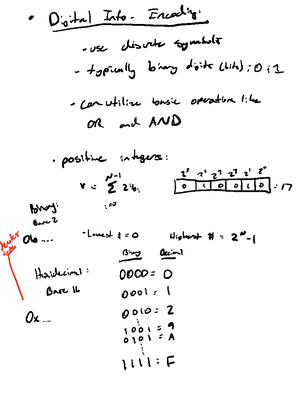 • Digital Info. Encoding:
- use discrete symbols
- typically binary digits (bits): 0 : 1
- Can utilize basic operation like
OR and AND
• positive integers:
N-1
V = Σ 2ⁱbᵢ
i=0
2⁵ 2⁴ 2³ 2² 2¹ 2⁰
0 1 0 0 1 0 = 17
Binary:
Base 2
0b ....
- Lowest # = 0
Highest # = 2ᴺ-1
Binary Decimal
Hexidecimal:
Base 16
0x ...
0000 = 0
0001 = 1
0010 = 2
1001 = 9
0101 = A
1111 = F